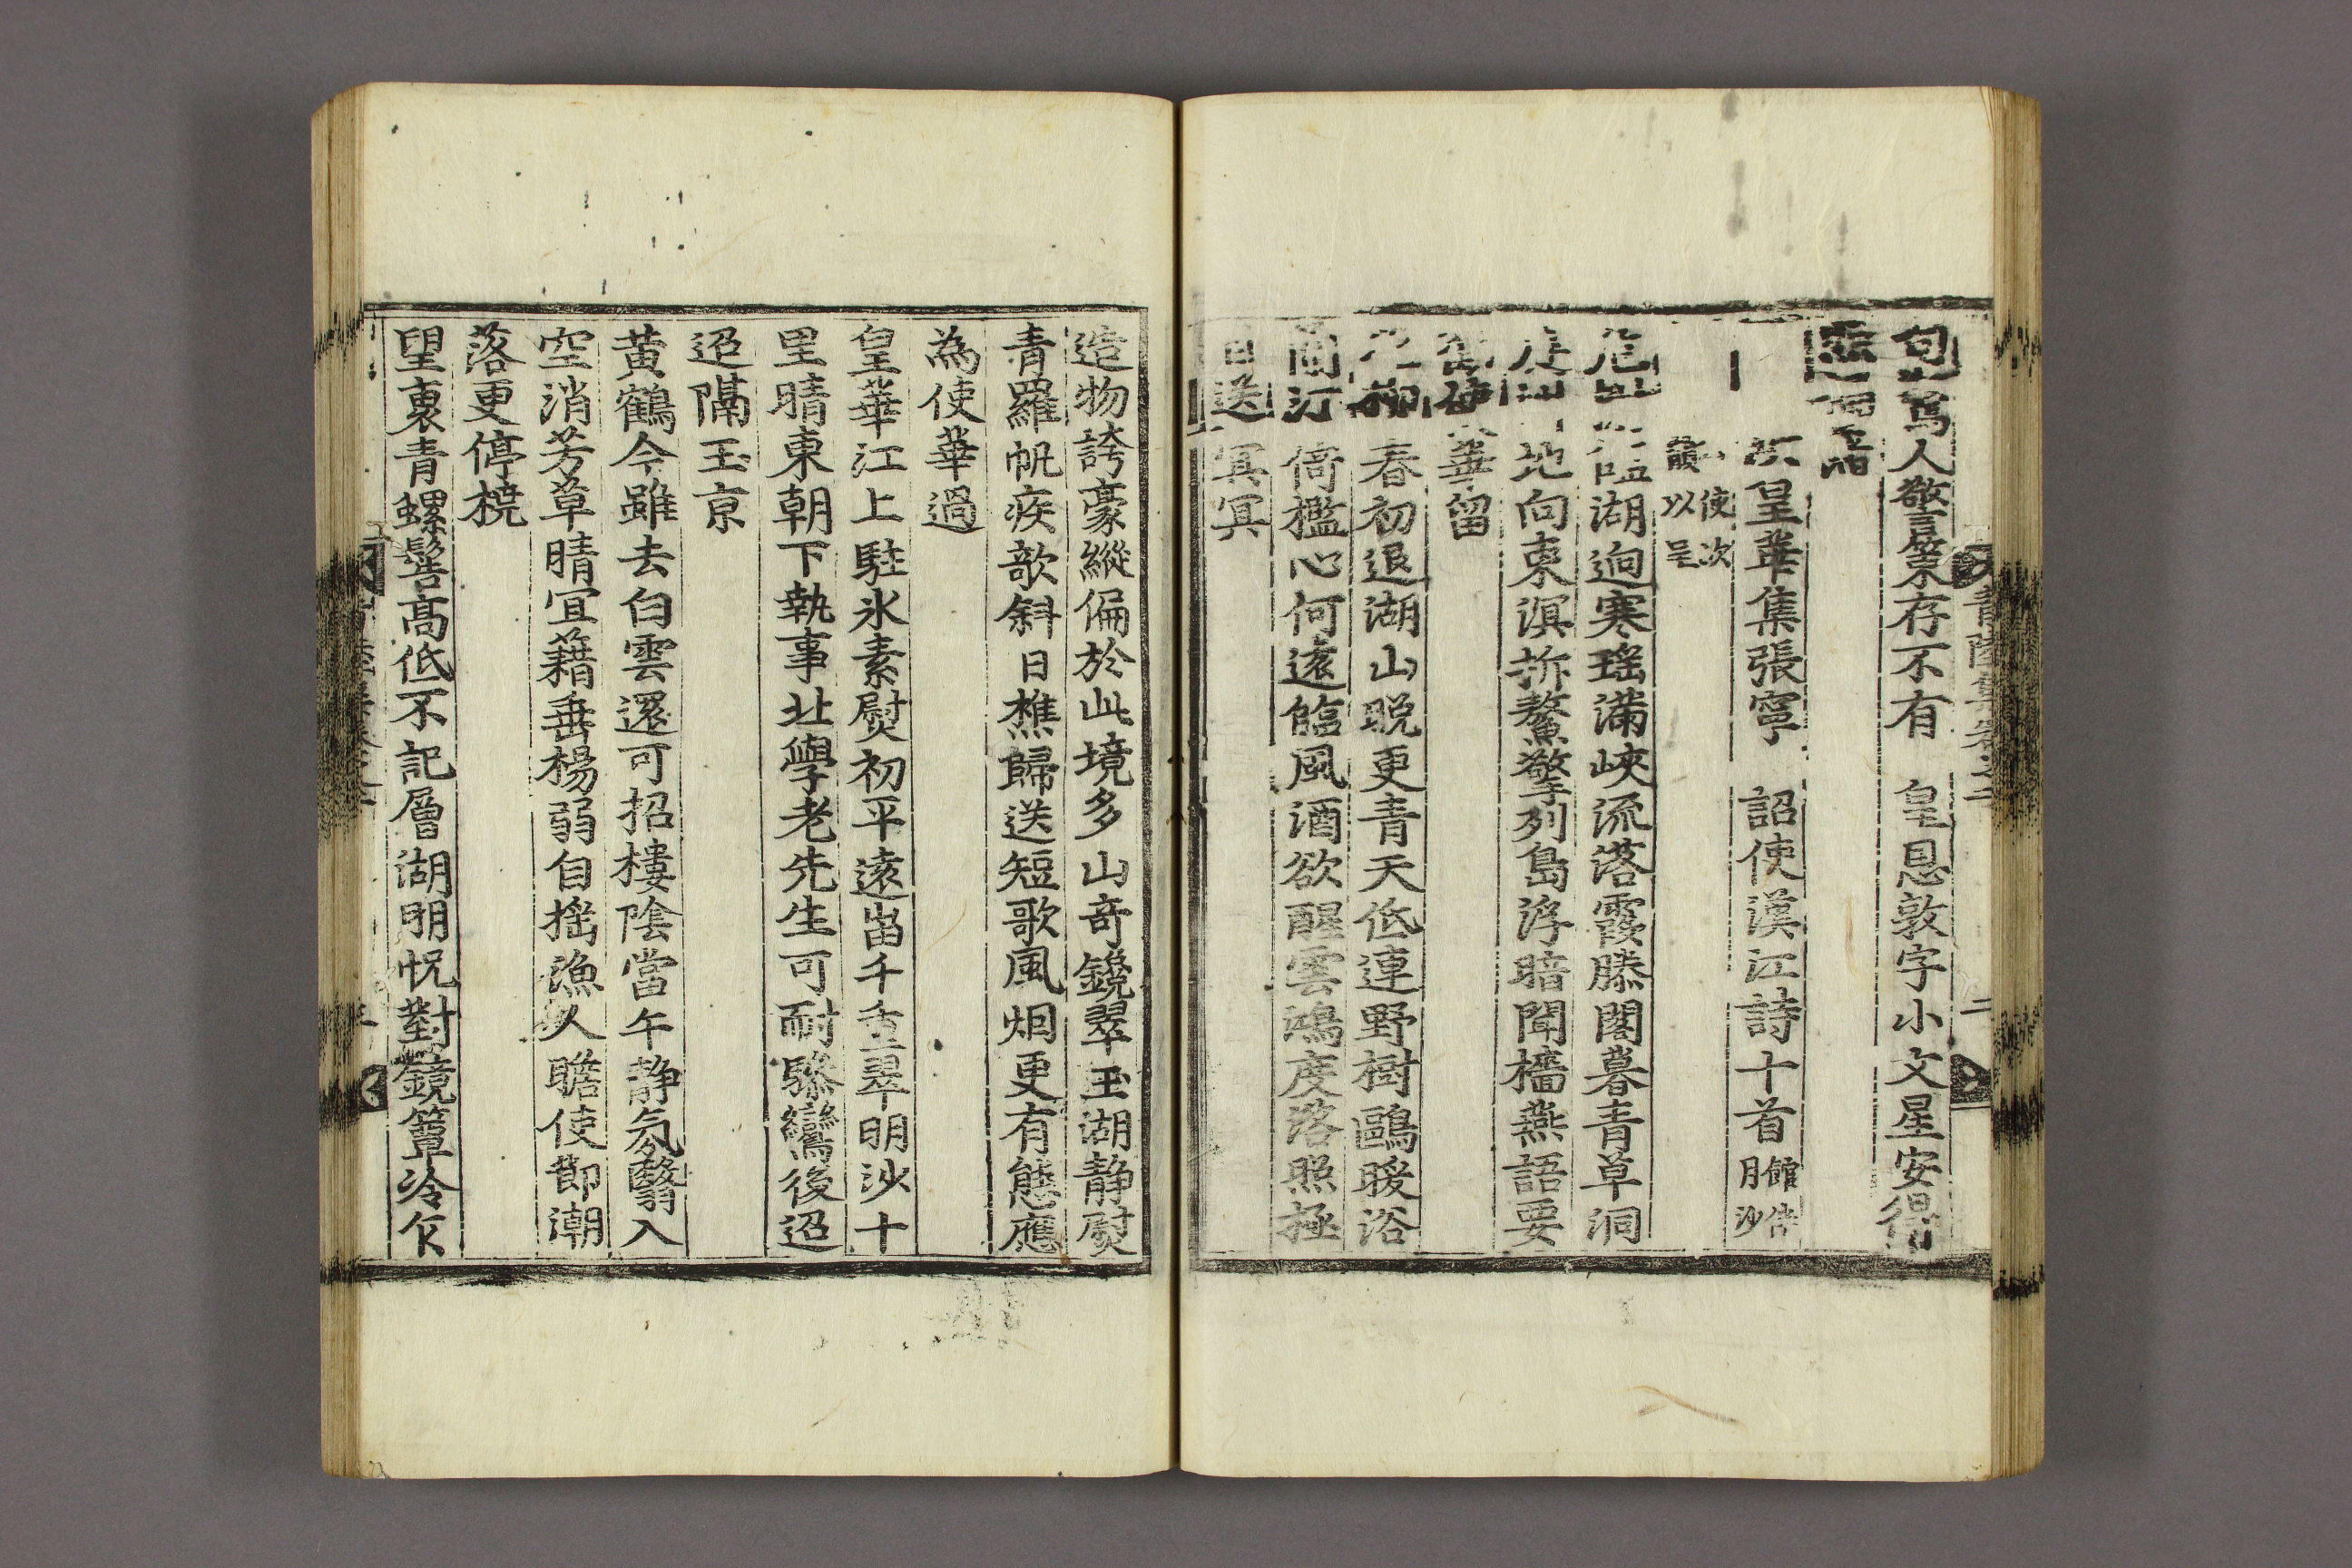 句 寫人驚稟存不有 皇恩敦字小文星安得
次皇華集張寧 詔使漢江詩十首 館伴月沙
使次韻以呈
危 臨湖逈寒瑤滿峽流落霞滕閣暮青草洞
庭 地向東溟坼鰲擎列島浮暗聞檣燕語要
使華留
花柳春初退湖山晚更青天低連野樹鷗暖浴
蘭汀倚檻心何遠臨風酒欲醒雲鴻度落照極
目送冥冥
造物誇豪縱偏於此境多山奇鑱翠玉湖靜熨
青羅帆疾欹斜日樵歸送短歌風烟更有態應
為使華過
皇華江上駐氷素熨初平遠峀千重翠明沙十
里晴東朝下執事北學老先生可耐驂鸞後迢
迢隔玉京
黃鶴今雖去白雲還可招樓陰當午靜氛翳入
空消芳草晴宜藉垂楊弱自搖漁人瞻使節潮
落更停橈
望裏青螺髻高低不記層湖明怳對鏡簟冷乍
青陰集卷之二
二